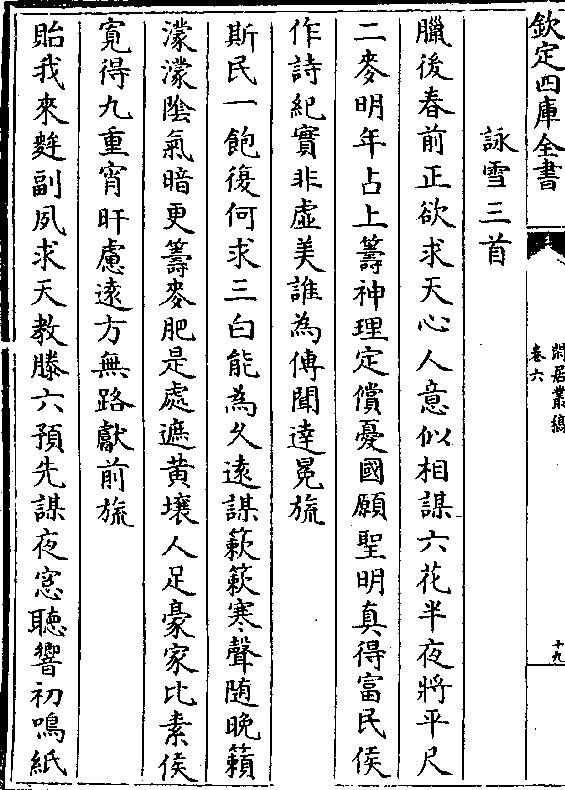 欽定四庫全書
閒居叢稿
卷六
十九
詠雪三首
臘後春前正欲求天心人意似相謀六花半夜將平尺
二麥明年占上籌神理定償憂國願聖明真得富民侯
作詩紀實非虛美誰為傳聞達冕旒
斯民一飽復何求三白能為久遠謀簌簌寒聲随晚籟
濛濛陰氣暗更籌麥肥是處遮黄壤人足豪家比素侯
寛得九重宵旰慮逺方無路獻前旒
貽我來麰副夙求天教滕六預先謀夜窓聽響初鳴紙